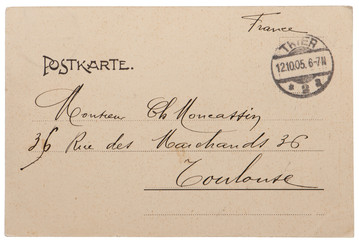 France
TRIER
12.10.05. 6-7N
* 2 a
POSTKARTE.
Monsieur Ch Moncassin
36 Rue des Marchands 36
Toulouse